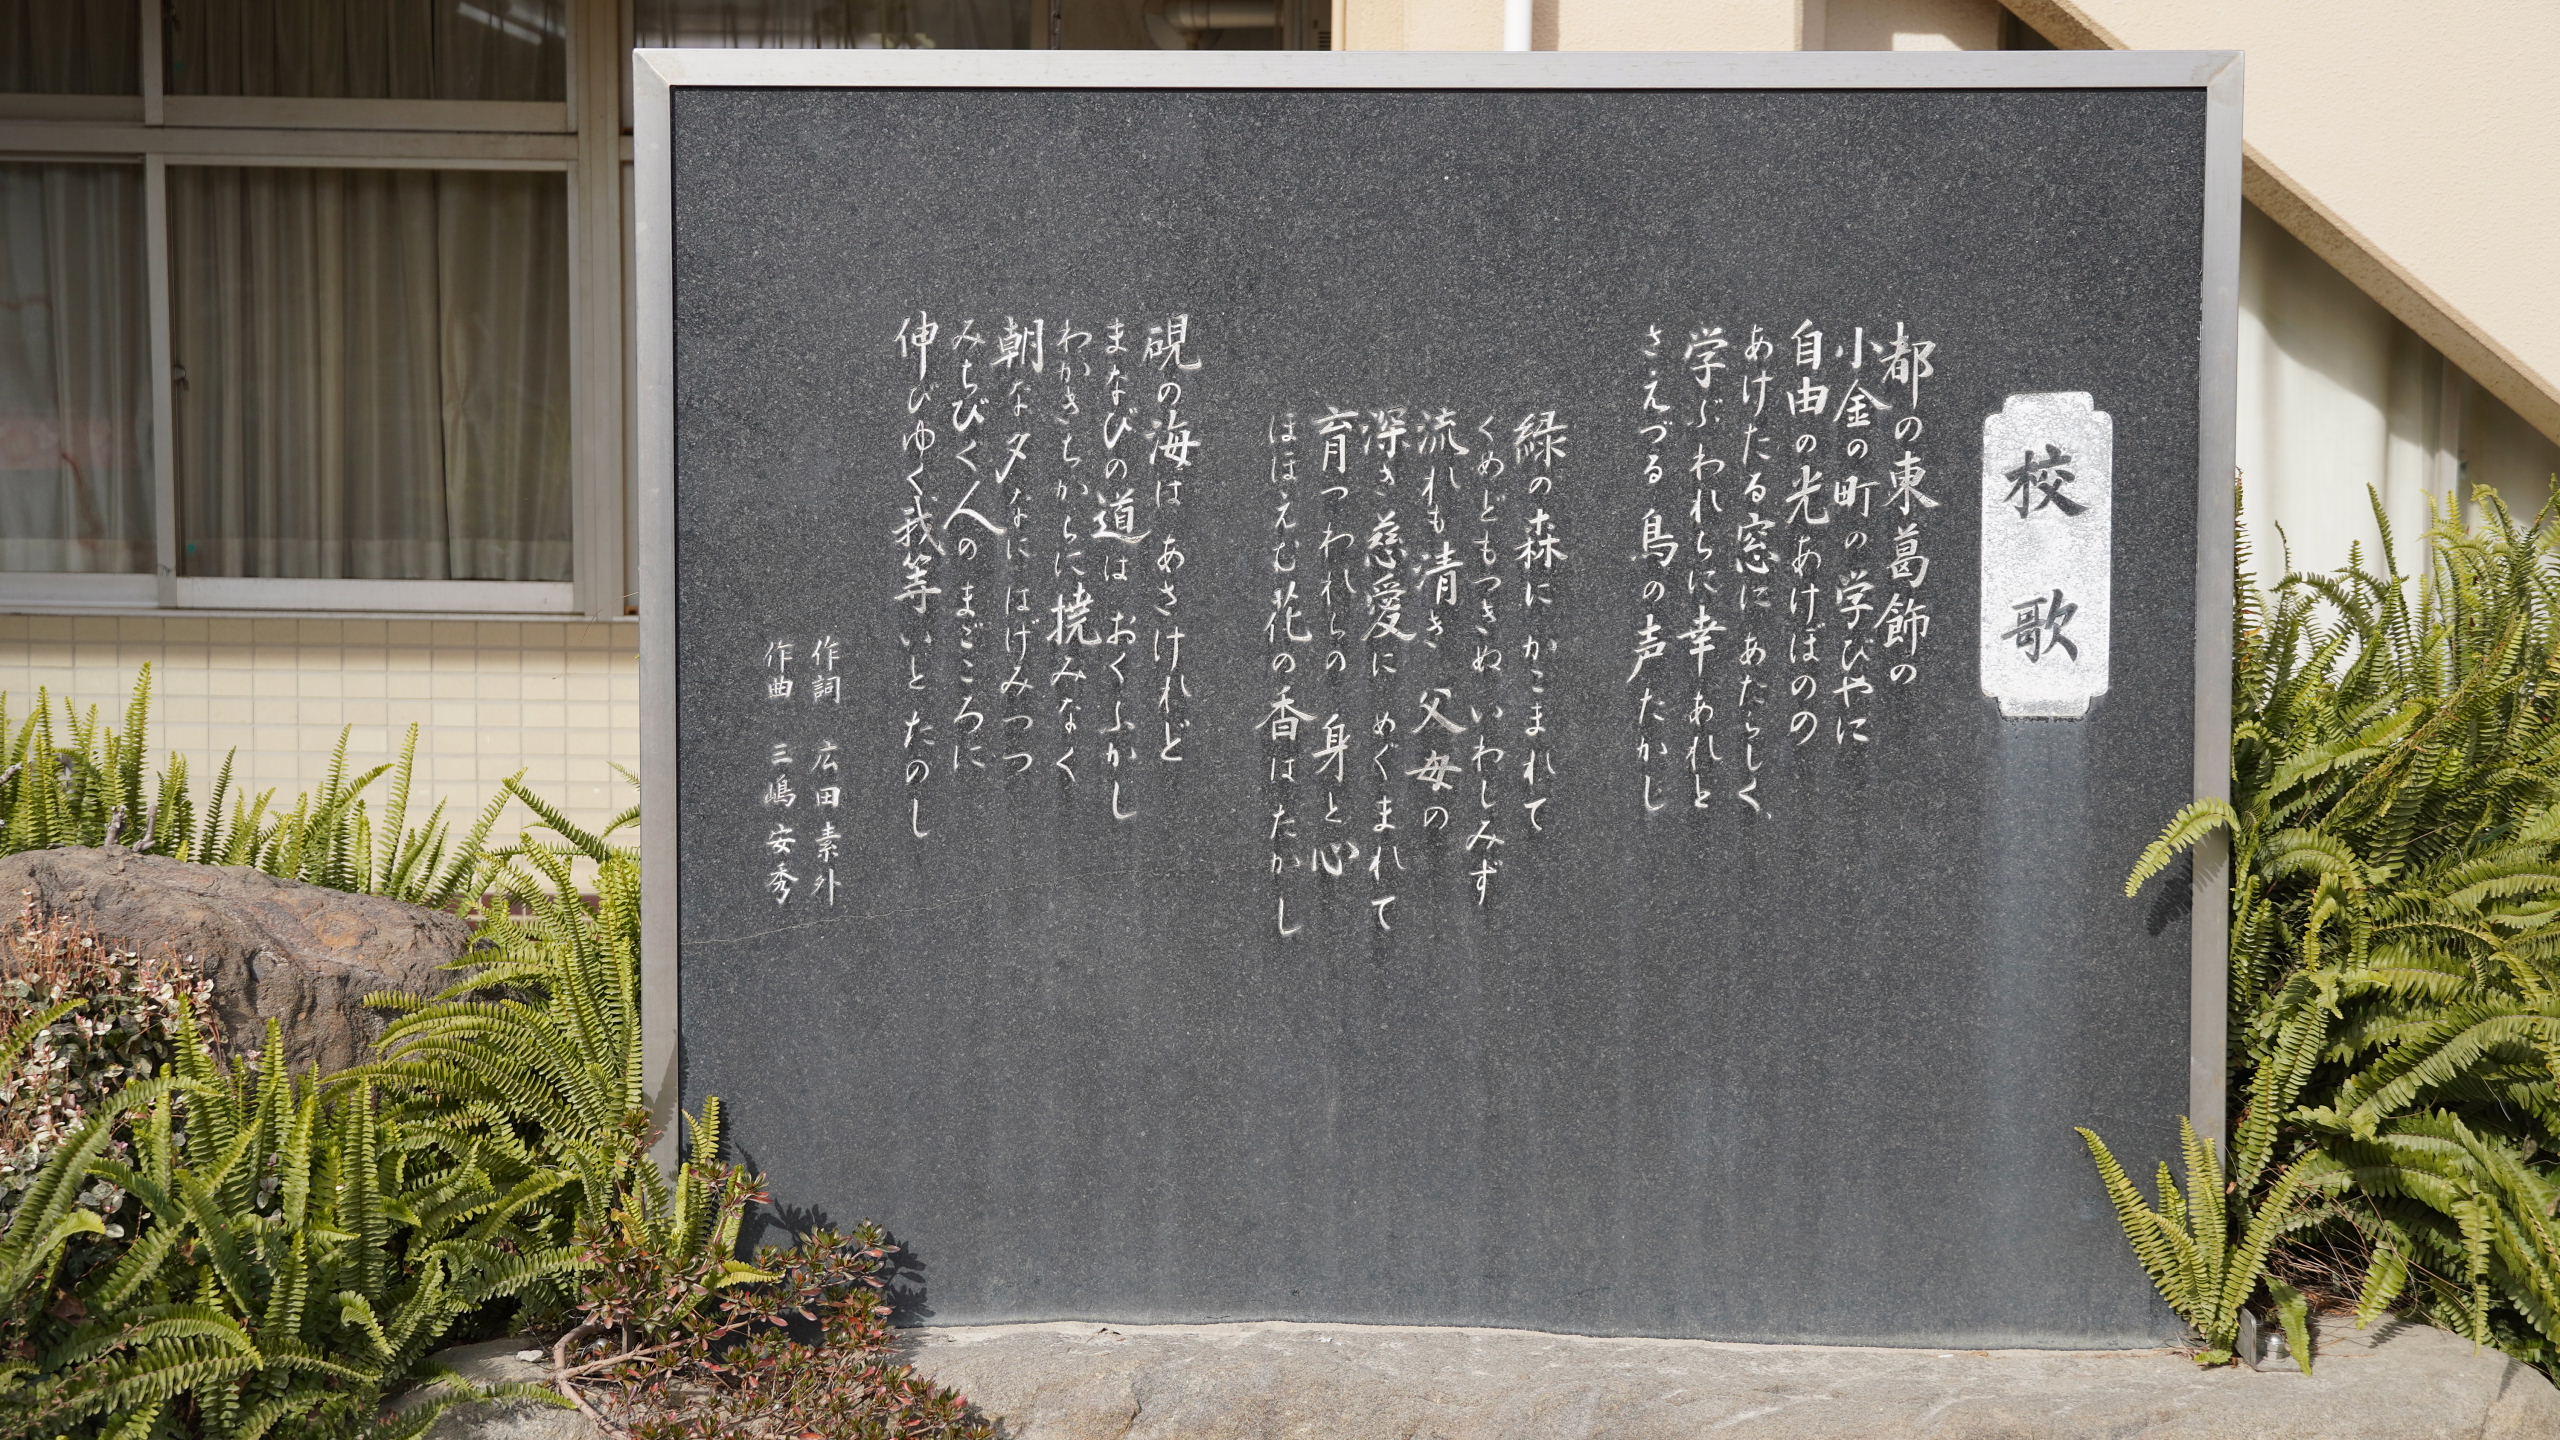 校歌
都の東葛飾の
小金の町の学びやに
自由の光あけぼのの
あけたる窓にあたらしく
学ぶわれらに幸あれと
さえづる鳥の声たかし
緑の森にかこまれて
くめどもつきぬいわしみず
流れも清き父母の
深き慈愛にめぐまれて
育つわれらの身と心
ほほえむ花の香はたかし
硯の海はあさけれど
まなびの道はおくふかし
わかきちからに撓みなく
朝な夕なにはげみつつ
みちびく人のまごころに
伸びゆく我等いとたのし
作詞 広田素外
作曲 三嶋安秀